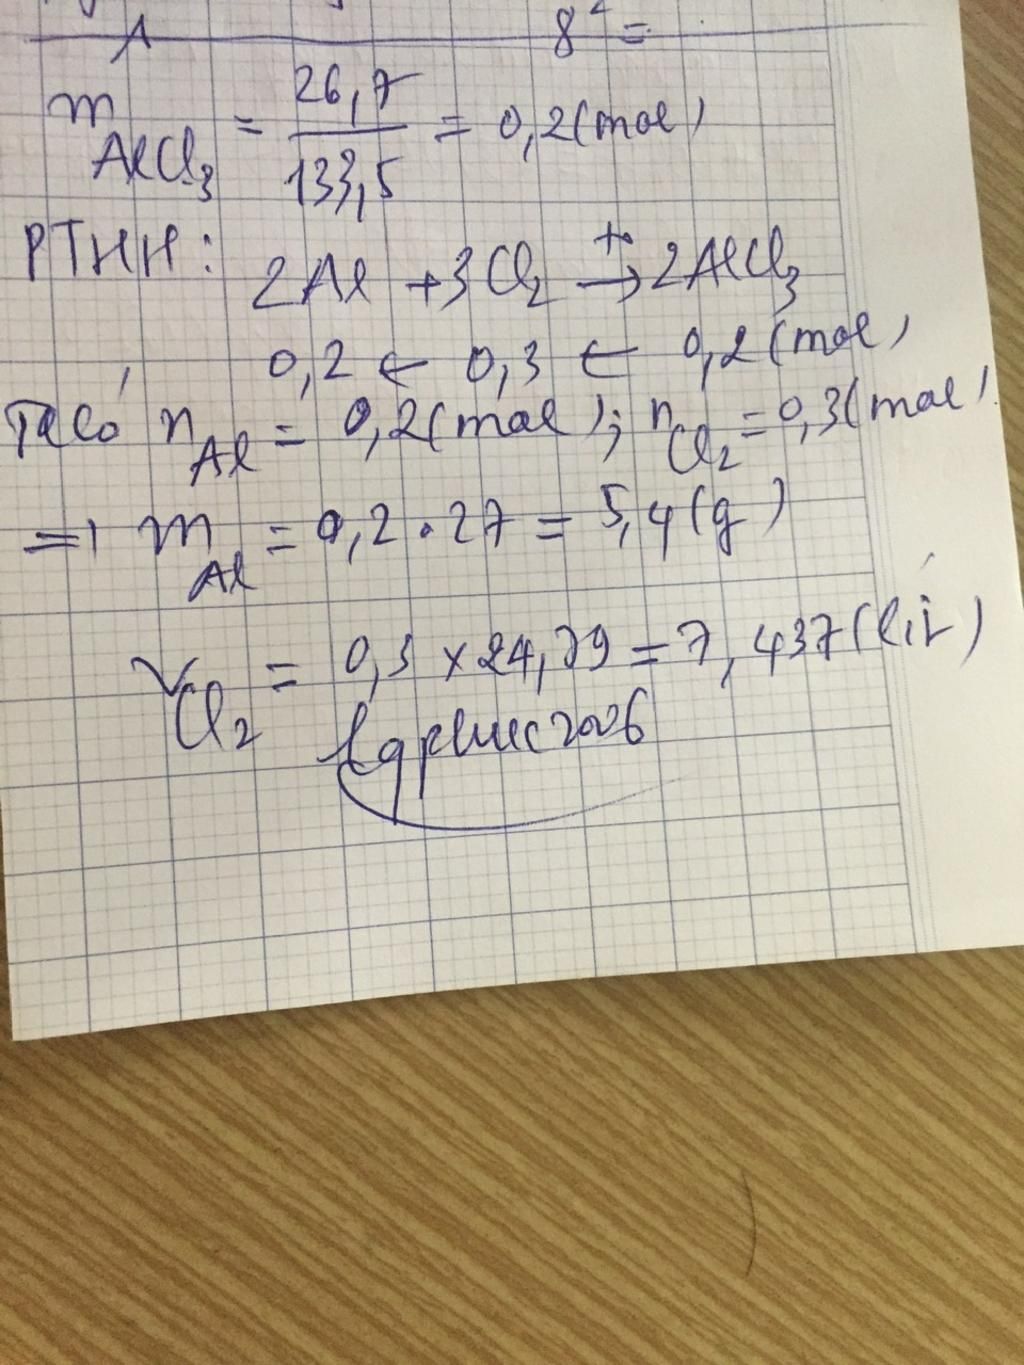 8² =
m AlCl₃ = 26,7 / 133,5 = 0,2 (mol)
PTHH: 2Al + 3Cl₂ →(t°) 2AlCl₃
0,2 ← 0,3 ← 0,2 (mol)
Ta có n Al = 0,2 (mol); n Cl₂ = 0,3 (mol)
=> m Al = 0,2 . 27 = 5,4 (g)
V Cl₂ = 0,3 x 24,79 = 7,437 (lít)